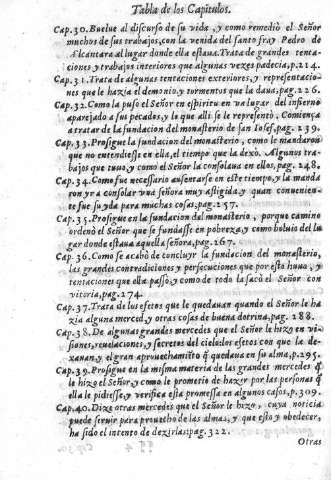 Tabla de los Capitulos.
Cap.30. Buelue al discurso de su vida, y como remediò el Señor
muchos de sus trabajos, con la venida del santo fray Pedro de
Alcantara al lugar donde ella estaua. Trata de grandes tenta-
ciones y trabajos interiores que algunas vezes padecia, p.214.
Cap.31. Trata de algunas tentaciones exteriores, y representacio-
nes que le hazia el demonio, y tormentos que la daua, pag.226.
Cap.32. Como la puso el Señor en espiritu en vn lugar del infierno
aparejado a sus pecados, y lo que alli se le representò. Comiença
a tratar de la fundacion del monasterio de san Iosef, pag.239.
Cap.33. Prosigue la fundacion del monasterio, como le mandaron
que no entendiesse en ella, el tiempo que la dexò. Algunos tra-
bajos que tuuo, y como el Señor la consolaua en ellos, pag.248.
Cap.34. Como fue necessario ausentarse en este tiempo, y la manda
ron yr a consolar vna señora muy afligida, y quan conuenien-
te fue su yda para muchas cosas, pag.257.
Cap.35. Prosigue en la fundacion del monasterio, porque camino
ordenò el Señor que se fundasse en pobreza, y como boluio del lu
gar donde estaua aquella señora, pag.267.
Cap.36. Como se acabò de concluyr la fundacion del monasterio,
las grandes contradiciones y persecuciones que por esto huuo, y
tentaciones que ella passò, y como de todo la sacò el Señor con
vitoria, pag.274.
Cap.37. Trata de los efetos que le quedauan quando el Señor le ha
zia alguna merced, y otras cosas de buena dotrina, pag.288.
Cap.38. De algunas grandes mercedes que el Señor le hizo en vi-
siones, reuelaciones, y secretos del cielo, los efetos con que la de-
xauan, y el gran aprouechamiẽto q̃ quedaua en su alma, p.295.
Cap.39. Prosigue en la misma materia de las grandes mercedes q̃
le hizo el Señor, y como le prometio de hazer por las personas q̃
ella le pidiesse, y verifica esta promessa en algunos casos, p.309.
Cap.40. Dize otras mercedes que el Señor le hizo, cuya noticia
puede seruir para prouecho de las almas, y que esto y obedecer,
ha sido el intento de dezirlas, pag.322.
Otras